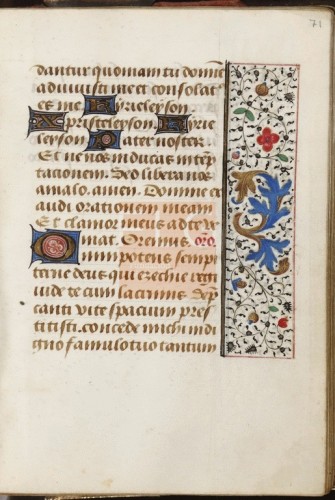 71
dantur quoniam tu domine
adiuvisti me et consolat9
es me. Kyrieleyson.
Xpristeleyson. Kyrie
leyson. Pater noster.
Et ne nos inducas in temp
tacionem. Sed libera nos
a malo. amen. Domine ex
audi orationem meam
Et clamor meus ad te ve
niat. Oremus. oro.
Omnipotens semp
terne deus qui ezechie regi
iude te cum lacrimis dep
canti vite spacium pres
titisti. concede michi indi
gno famulo tuo tantum